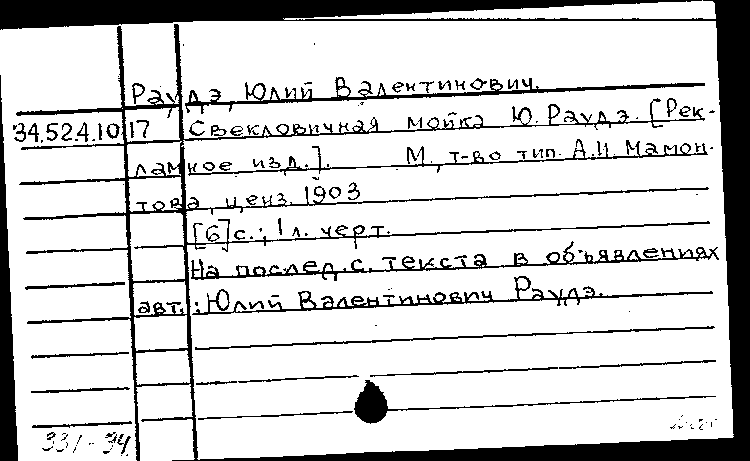 Раудэ, Юлий Валентинович.
34.52.4.10 17 Свекловичная мойка Ю. Раудэ. [Рек-
ламное изд.]. М, т-во тип. А.И. Мамон-
това, ценз. 1903
[6]с.; 1 л. черт.
На послед. с. текста в объявлениях
авт.: Юлий Валентинович Раудэ.
331-94